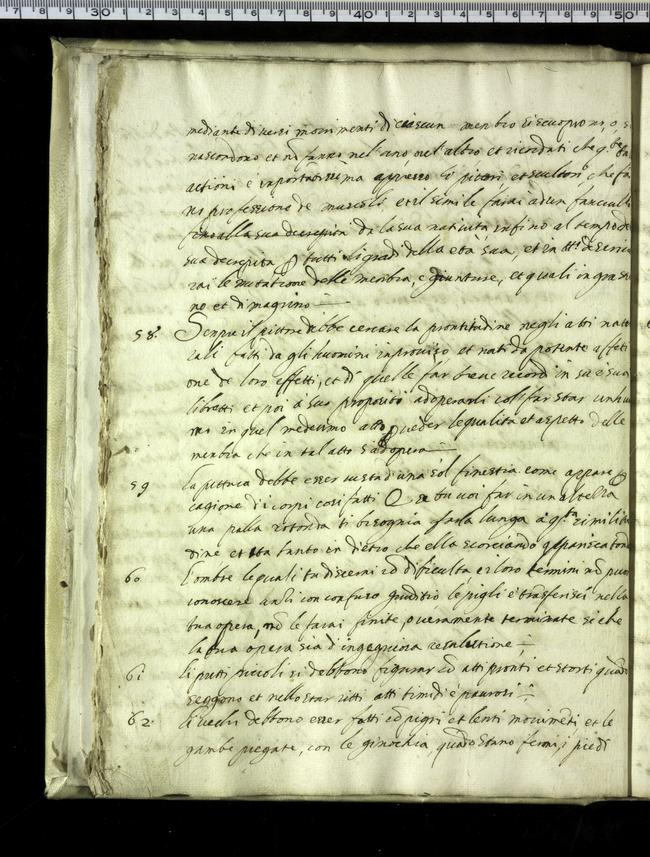 7 8 9 30 1 2 3 4 5 6 7 8 9 40 1 2 3 4 5 6 7 8 9 50
mediante diversi movimenti di ciascun membro si scuoprono, o, si
nascondono et nō fanno nel'uno nel'altro et ricordati che
actioni è importatissima appresso li pittori et scultori che fa
no professione de muscoli et il simile farai ad un fanciullo
fino alla sua decrepità da la sua natività infino al tempo de
sua decrepita tutti li gradi della età sua, et in
rai le mutatione delle membra, e giunture, et quali ingrassa
no et dimagrino
58. Sempre il pittore debbe cercare la prontitudine negli atti natu
rali fatti da gli huomini inproviso et nati da potente affeti
one de loro effetti, et di quelle far breve ricordi in su e suoi
libretti et poi à suo proposito adoperarli col far star un huo
mo in quel medesimo atto veder le qualità et aspetto delle
membra che in tal atto s'adopera
59 La pittura debbe esser vista d'una sol finestra come appare
cagione di i corpi cosi fatti se tu voi far in un altezza
una palla rotonda ti bisognia farla lunga à simili
dine et sta tanto in dietro che ella scorciando apparisca tonda
60 L'ombre le quali tu discerni cō dificulta e i loro termini nō puoi
conoscere anzi con confuso giuditio le pigli e trasferisci nella
tua opera, nō le farai finite, o veramente terminate si che
la tua opera sia d'ingegniosa resolutione
61 li putti piccoli si debbono figurar cō atti pronti et storti quādo
seggono et nello star ritti atti timidi e paurosi
62. li vecchi debbono esser fatti cō pigri et lenti movimēti et le
gambe piegate, con le ginochia, quādo stano fermi, i piedi